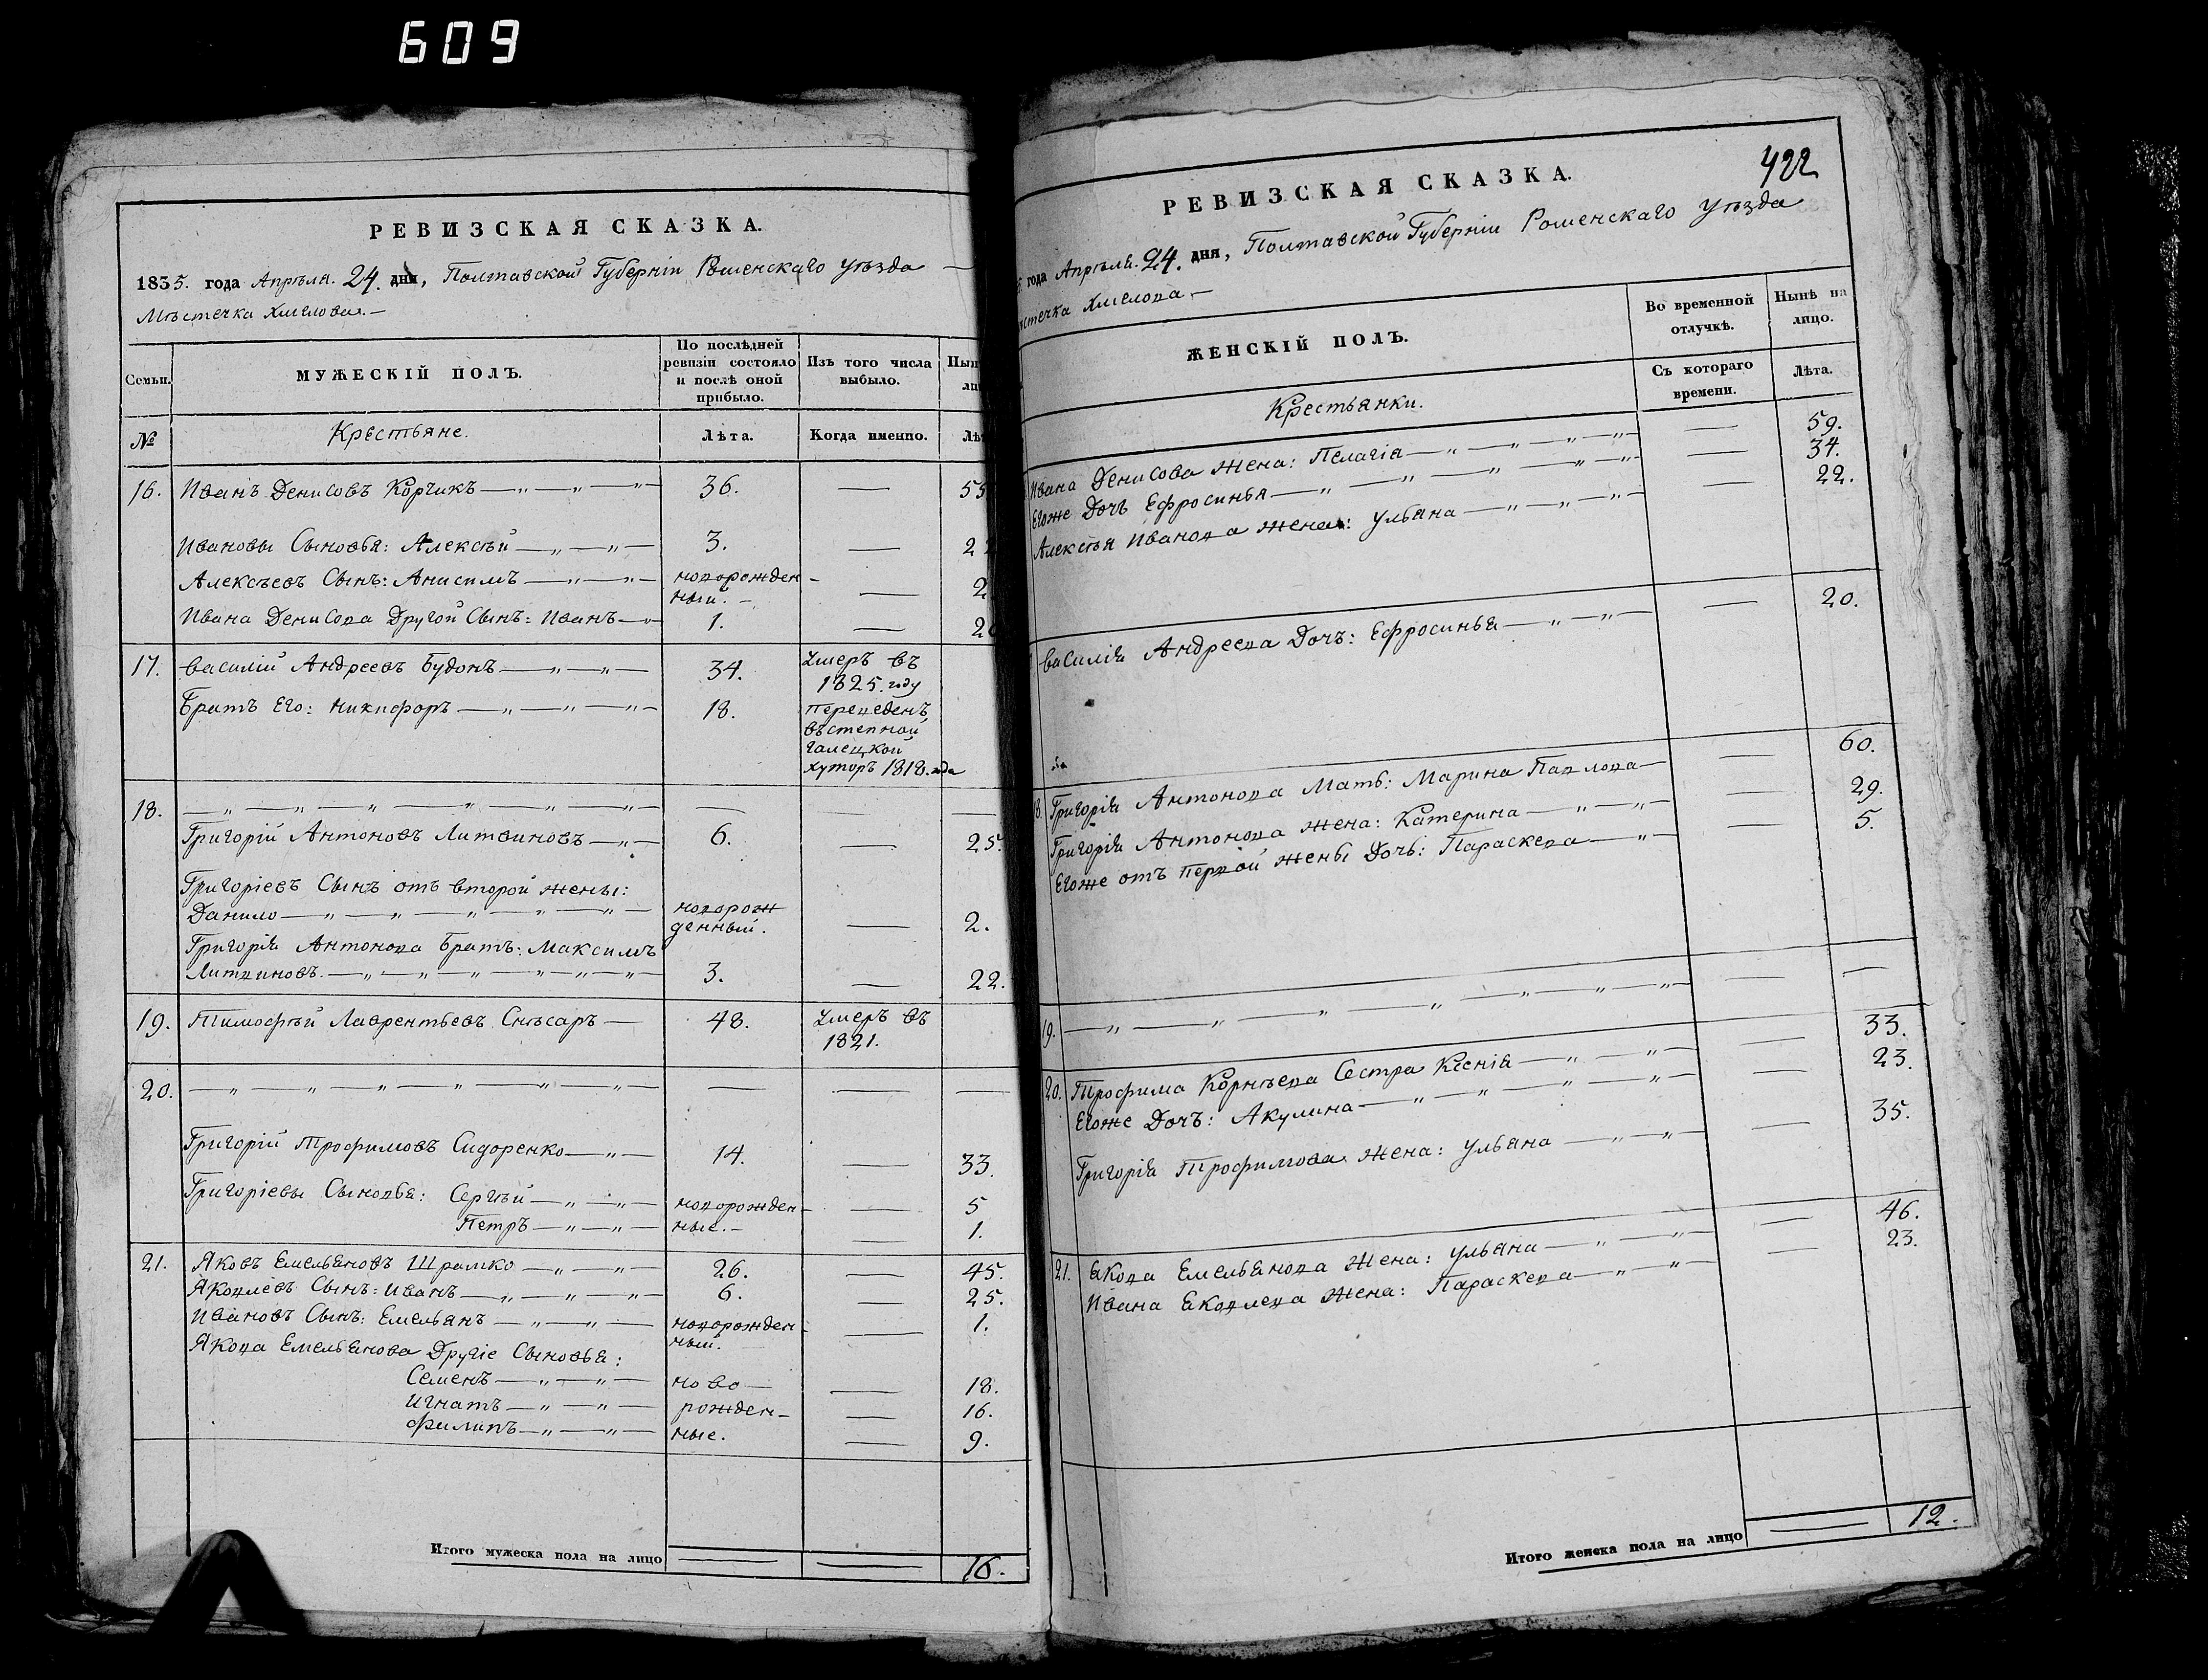 609
РЕВИЗСКАЯ СКАЗКА.
1835. года Апрѣля. 24. дня, Полтавской Губерніи Роменскаго Уѣзда —
Мѣстечка Хмелова. —
Семьи.
МУЖЕСКІЙ ПОЛЪ.
По послѣдней ревизіи состояло и послѣ оной прибыло.
Изъ того числа выбыло.
№
Крестьяне.
Лѣта.
Когда именно.
16. Иванъ Денисовъ Корчикъ — „ — „ — „ — 36. —
Ивановы Сыновья: Алексѣй — „ — „ — 3. —
Алексѣевъ Сынъ: Анисимъ — „ — „ — новорожден-
ный. — —
Ивана Денисова Другой Сынъ: Иванъ — „ 1. —
17. Василій Андреевъ Будонъ — „ — „ — 34. Умеръ въ
1825. году
Братъ Его: Никифоръ — „ — „ — „ — 18. переведенъ
въ степной
Галецкой
хуторъ 1818. года
18. — „ — „ — „ — „ — „ — „ — — — —
Григорій Антоновъ Литвиновъ — „ — 6. — 25.
Григоріевъ Сынъ отъ второй жены:
Данило — „ — „ — „ — „ — „ — новорож
денный. — 2.
Григорія Антонова Братъ: Максимъ
Литвиновъ. — „ — „ — „ — „ — „ — „ — 3. — 22.
19. Тимофѣй Лаврентьевъ Снѣсаръ — 48. Умеръ въ
1821.
20. — „ — „ — „ — „ — „ — „ — — — —
Григорій Трофимовъ Сидоренко — „ — 14. — 33.
Григоріевы Сыновья: Сергѣй — „ — „ — новорожден- — 5
Петръ — „ — „ — ные. — — 1.
21. Яковъ Емельяновъ Шрамко — „ — „ — 26. — 45.
Яковлевъ Сынъ: Иванъ — „ — „ — „ — 6. — 25.
Ивановъ Сынъ: Емельянъ — „ — „ — новорожден- — 1.
ный.
Якова Емельянова Другіе Сыновья:
Семенъ — „ — „ — ново — — 18.
Игнатъ — „ — „ — рожден- — 16.
Филипъ — „ — „ — ные. — 9.
Итого мужеска пола на лицо — — 16.
422
РЕВИЗСКАЯ СКАЗКА.
года Апрѣля. 24. дня, Полтавской Губерніи Роменскаго Уѣзда
Хмелова. —
ЖЕНСКІЙ ПОЛЪ.
Во временной отлучкѣ.
Нынѣ на лицо.
Крестьянки.
Съ котораго времени.
Лѣта.
Ивана Денисова жена: Пелагія — „ — „ — „ — — 59.
Егоже Дочь Ефросинья — „ — „ — „ — „ — „ — — 34.
Алексѣя Иванова жена: Ульяна — „ — „ — „ — — 22.
Василія Андреева Дочъ: Ефросинья — „ — „ — — 20.
Григорія Антонова Мать: Марина Павлова — — 60.
Григорія Антонова жена: Катерина — „ — „ — — 29.
Егоже отъ первой жены Дочь: Параскева — „ — — 5.
19. — „ — „ — „ — „ — „ — „ — „ — — —
20. Трофима Корнѣева Сестра Ксенія — „ — „ — — 33.
Егоже Дочъ: Акулина — „ — „ — „ — „ — — 23.
Григорія Трофимова жена: Ульяна — „ — „ — — 35.
21. Якова Емельянова жена: Ульяна — „ — „ — — 46.
Ивана Яковлева жена: Параскева — „ — „ — — 23.
Итого женска пола на лицо — 12.